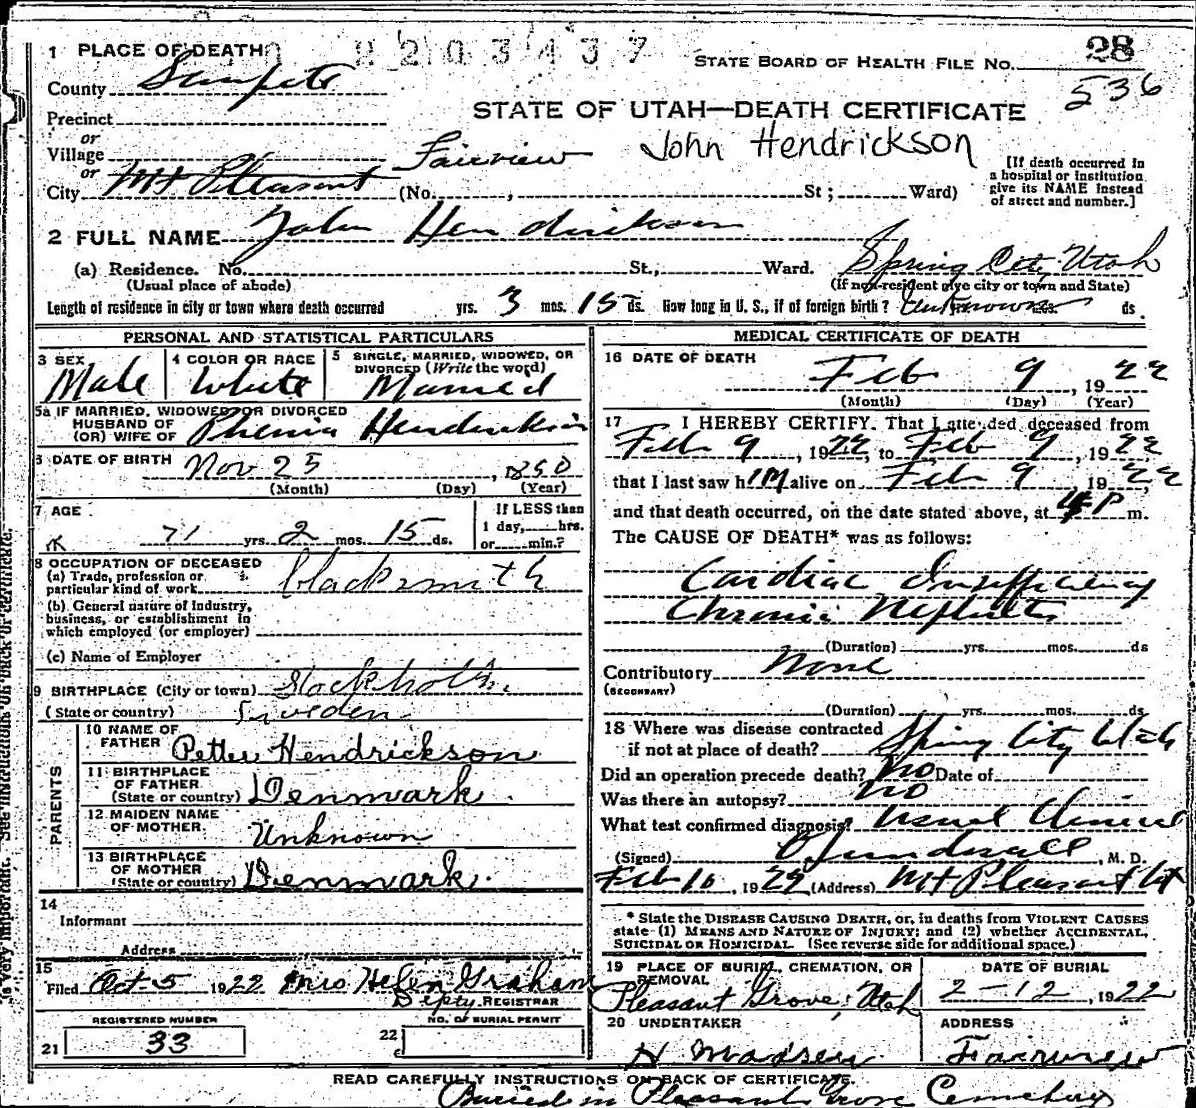 1 PLACE OF DEATH
8203437
STATE BOARD OF HEALTH FILE NO. 28
536
County Sanpete
STATE OF UTAH—DEATH CERTIFICATE
Precinct
or
Village
Fairview
John Hendrickson
or
City Mt Pleasant (No. , St; Ward)
[If death occurred in
a hospital or institution
give its NAME instead
of street and number.]
2 FULL NAME John Hendrickson
(a) Residence. No. St., Ward. Spring City Utah
(Usual place of abode)
(If non-resident give city or town and State)
Length of residence in city or town where death occurred yrs. 3 mos. 15 ds. How long in U. S., if of foreign birth? Unknown ds.
PERSONAL AND STATISTICAL PARTICULARS
3 SEX
Male
4 COLOR OR RACE
White
5 SINGLE, MARRIED, WIDOWED, OR
DIVORCED (Write the word)
Married
5a IF MARRIED, WIDOWED, OR DIVORCED
HUSBAND OF
(OR) WIFE OF Phenia Hendrickson
DATE OF BIRTH Nov 25, 1850
(Month) (Day) (Year)
7 AGE
71 yrs. 2 mos. 15 ds.
If LESS than
1 day, hrs.
or min.?
8 OCCUPATION OF DECEASED
(a) Trade, profession or
particular kind of work blacksmith
(b) General nature of Industry,
business, or establishment in
which employed (or employer)
(c) Name of Employer
9 BIRTHPLACE (City or town) Stockholm.
(State or country) Sweden
PARENTS
10 NAME OF
FATHER Petter Hendrickson
11 BIRTHPLACE
OF FATHER
(State or country) Denmark.
12 MAIDEN NAME
OF MOTHER Unknown
13 BIRTHPLACE
OF MOTHER
(State or country) Denmark.
14
Informant
Address
15
Filed Oct-5 1922 Mrs Helen Graham
Depty REGISTRAR
REGISTERED NUMBER
21 33
NO. OF BURIAL PERMIT
22
MEDICAL CERTIFICATE OF DEATH
16 DATE OF DEATH
Feb 9, 1922
(Month) (Day) (Year)
17 I HEREBY CERTIFY. That I attended deceased from
Feb 9, 1922, to Feb 9, 1922
that I last saw him alive on Feb 9, 1922,
and that death occurred, on the date stated above, at 4 P m.
The CAUSE OF DEATH* was as follows:
Cardiac Insufficiency
Chronic Nephritis
(Duration) yrs. mos. ds
Contributory None
(SECONDARY)
(Duration) yrs. mos. ds
18 Where was disease contracted
if not at place of death? Spring City Utah
Did an operation precede death? No Date of
Was there an autopsy? No
What test confirmed diagnosis? Usual Clinical
(Signed) , M. D.
Feb 10, 1922 (Address) Mt Pleasant Ut
* State the DISEASE CAUSING DEATH, or, in deaths from VIOLENT CAUSES
state (1) MEANS AND NATURE OF INJURY; and (2) whether ACCIDENTAL,
SUICIDAL OR HOMICIDAL. (See reverse side for additional space.)
19 PLACE OF BURIAL, CREMATION, OR
REMOVAL
Pleasant Grove, Utah
DATE OF BURIAL
2-12, 1922
20 UNDERTAKER
H Madsen
ADDRESS
Fairview
READ CAREFULLY INSTRUCTIONS ON BACK OF CERTIFICATE.
Buried in Pleasant Grove Cemetery
is very important. See instructions on back of certificate.